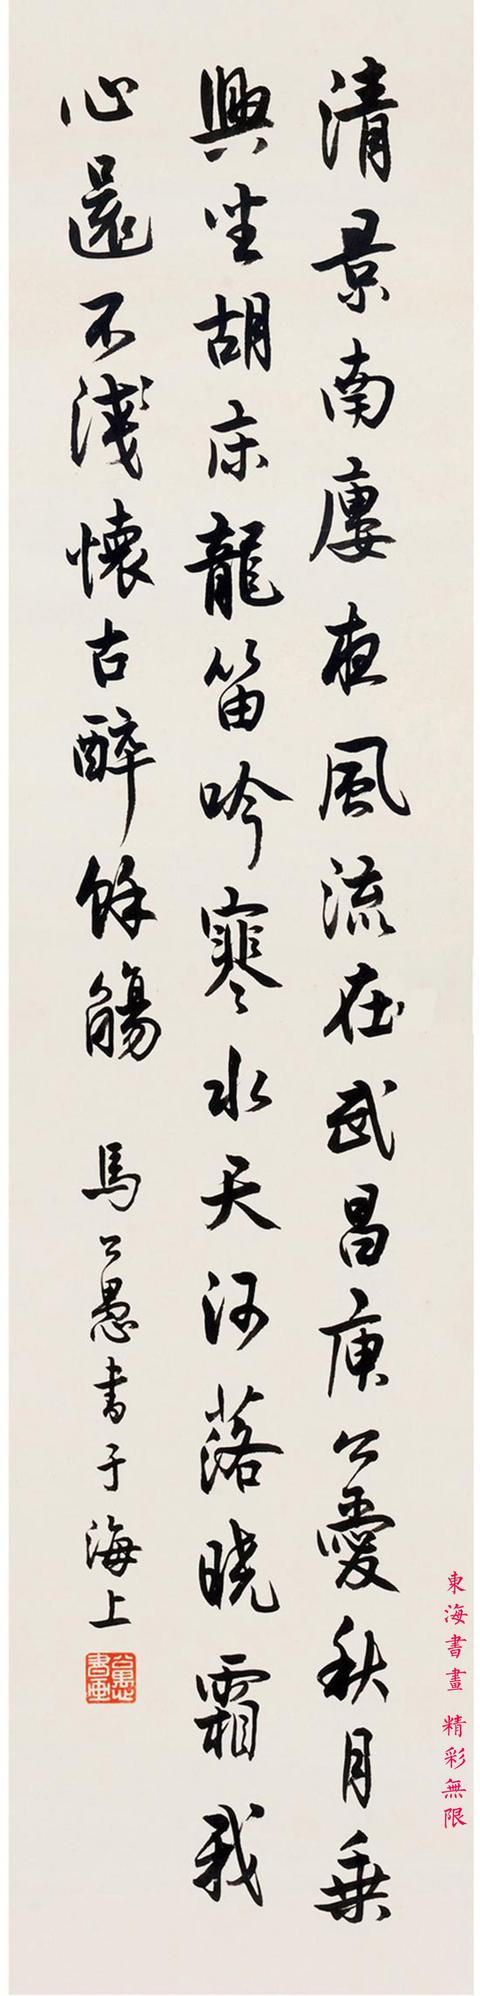 清景南廔夜風流在武昌庾公愛秋月乘
興坐胡床龍笛吟寒水天河落曉霜我
心還不淺懷古醉餘觴 馬公愚書于海上
公愚書畫
東海書畫 精彩無限